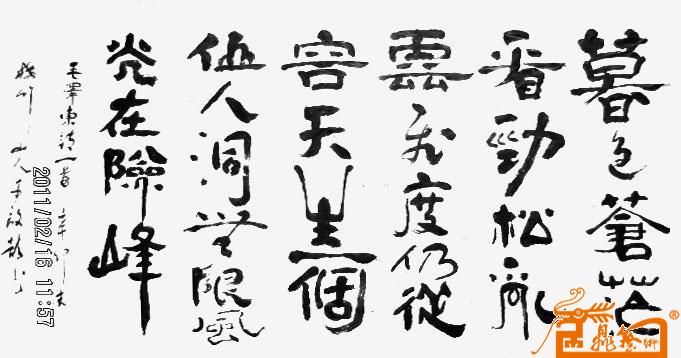 暮色蒼茫
看勁松亂
雲飛度仍從
容天生一個
仙人洞無限風
光在險峰
毛澤東詩一首 辛卯
2011/02/16 11:57